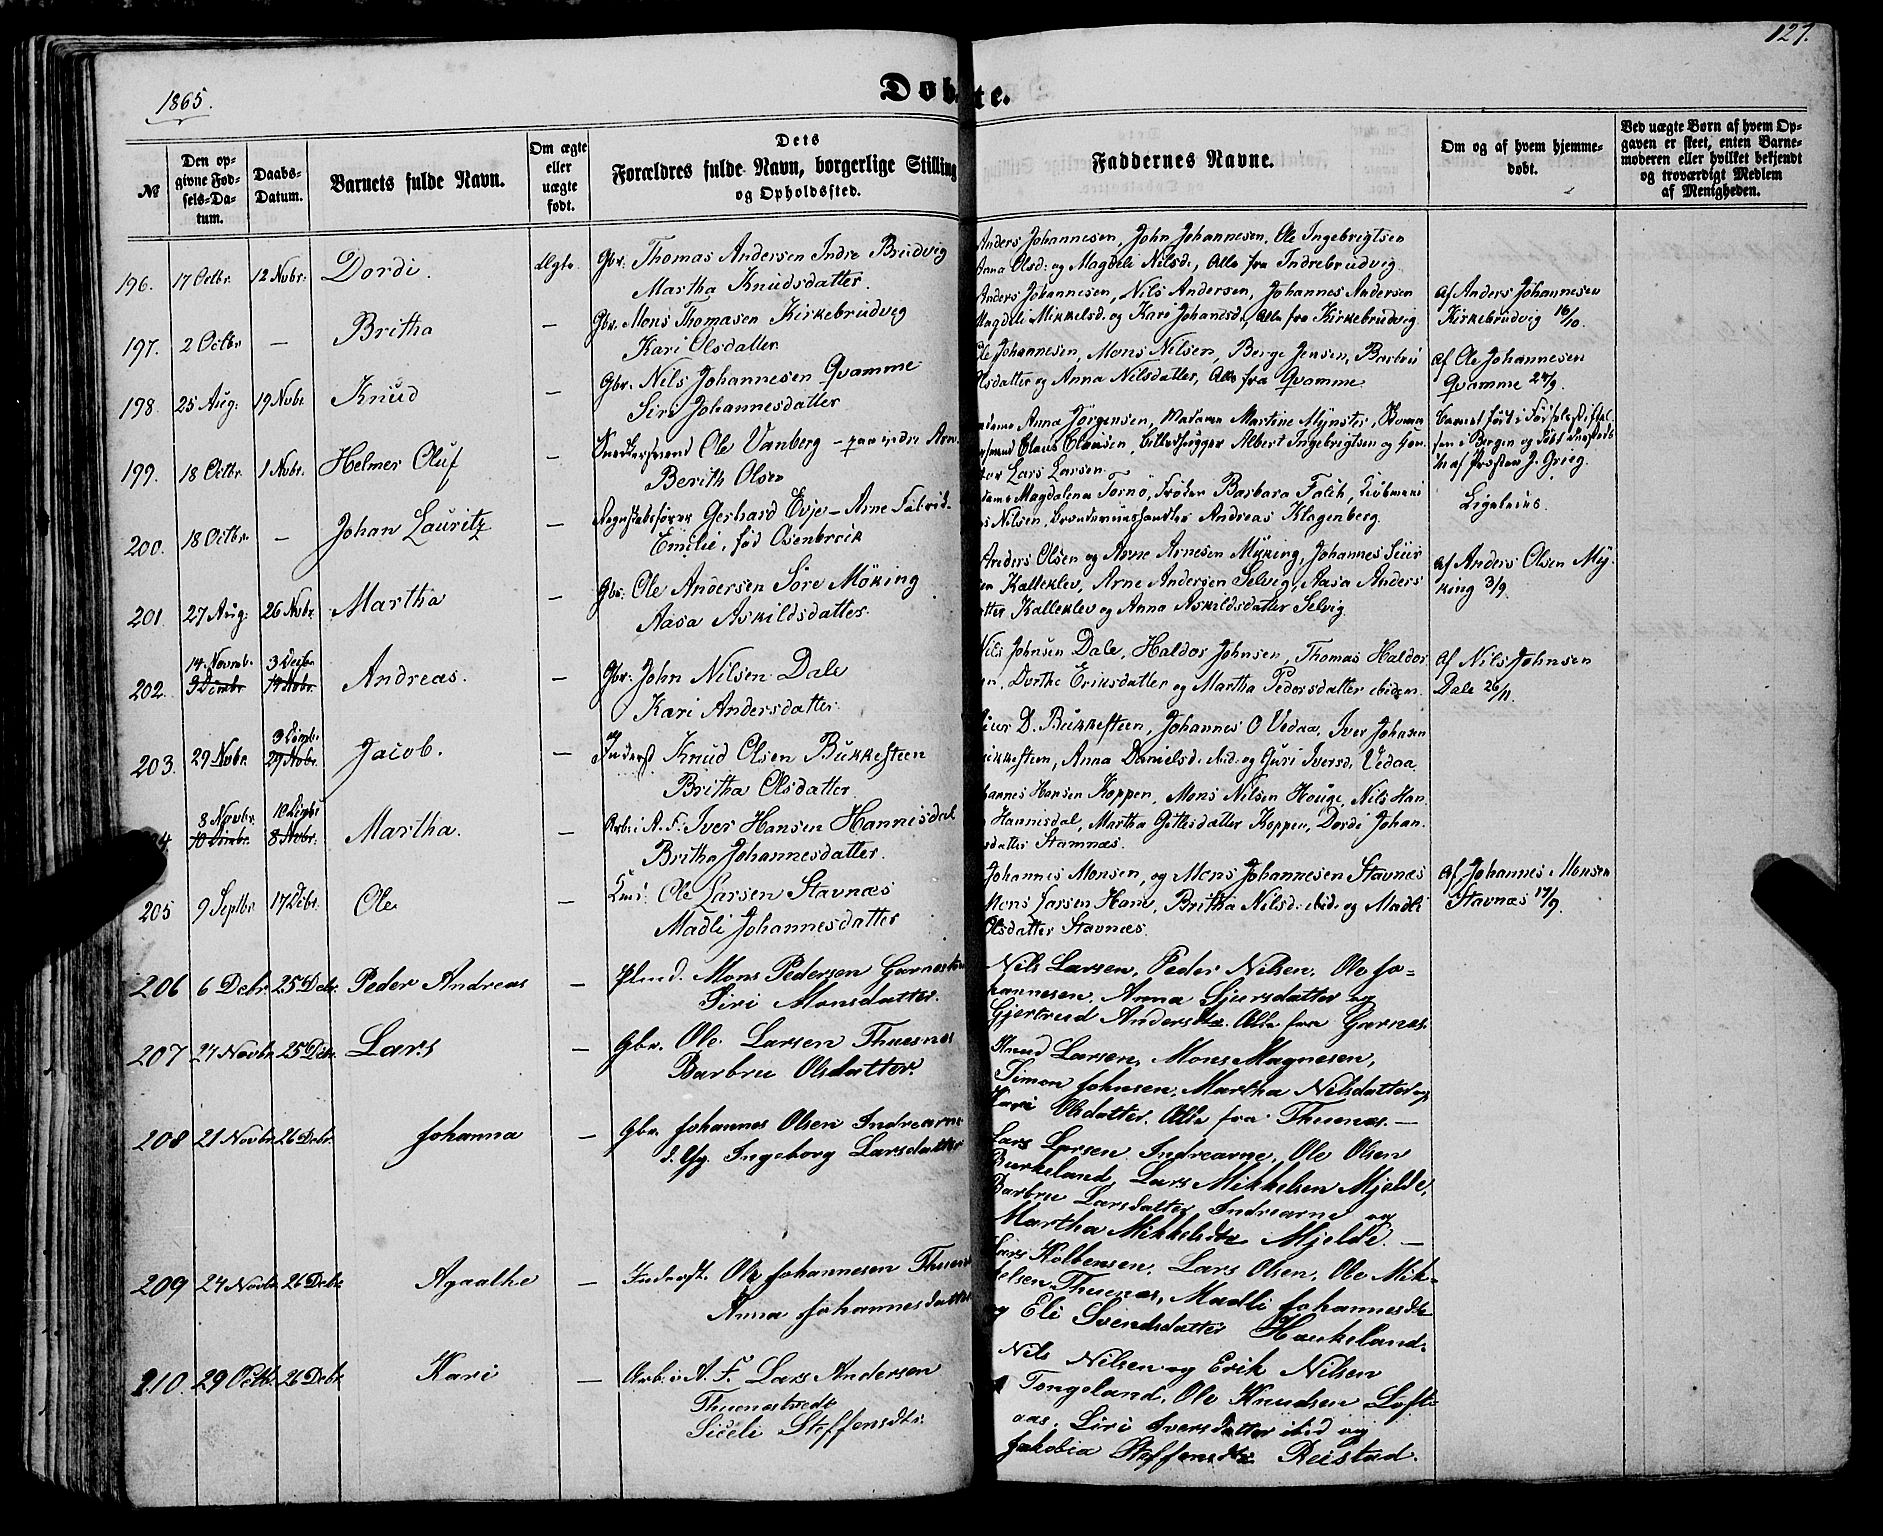 127.
1865.
Døbte.
№
Den opgivne Fødsels-Datum.
Daabs-Datum.
Barnets fulde Navn.
Om ægte eller uægte født.
Dets Forældres fulde Navn, borgerlige Stilling og Opholdssted.
Faddernes Navne.
Om og af hvem hjemmedøbt.
Ved uægte Børn af hvem Opgaven er skeet, enten Barnemoderen eller hvilket bekjendt og troværdigt Medlem af Menigheden.
196. 17 Octbr. 12 Novbr. Dordi. Ægte.
Gbr. Thomas Andersen Indre Brudvig
Martha Knudsdatter.
Anders Johannesen, John Johannesen, Ole Ingebrigtsen
Anna Olsd. og Magdeli Nilsd., Alle fra Indrebrudvig
197. 2 Octbr. — Britha —
Gbr. Mons Thomasen Kirkebrudvig
Kari Olsdatter
Anders Johannesen, Nils Andersen, Johannes Andersen
Magdeli Mikkelsd. og Kari Johansd., Alle fra Kirkebrudvig
af Anders Johannesen
Kirkebrudvig 16/10.
198. 25 Aug. 19 Novbr. Knud —
Gbr. Nils Johannesen Qvamme
Siri Johannesdatter
Ole Johannesen, Mons Nilsen, Børge Jensen, Barbru
Olsdatter og Anna Nilsdatter, Alle fra Qvamme
af Ole Johannesen
Qvamme 27/9.
199. 18 Octbr. 1 Novbr. Helmer Oluf —
Ole Vanberg – paa indre Arne
Berith Olsen
Anna Jørgensen, Madame Martine Mynster,
Claus Clausen, Albert Ingebrigtsen og
Lars Larsen.
Barnet født i Fødselsstiftelsen i Bergen og
af Presten J. Grieg.
200. 18 Octbr. — Johan Lauritz —
Regnskabsfører Gerhard Evje – Arne Fabrik
Emilie, fød Osenbroch
Magdalena Tornø, Frøken Barbara Falch,
Nilsen, Brændeviinshandler Andreas Klagenberg.
Ligeledes.
201. 27 Aug. 26 Nvbr. Martha —
Gbr. Ole Andersen Søre Møking
Aasa Askildsdatter.
Anders Olsen og Arne Arnesen Myking, Johannes Siur
sen Kalleklev, Arne Andersen Selvig, Aasa Anders
datter Kalleklev og Anna Askildsdatter Selvig.
af Anders Olsen My
king 3/9.
14 Novmb. 3 Decbr.
202. Andreas. —
Gbr. John Nilsen Dale
Kari Andersdatter.
Nils Johnsen Dale, Haldor Johnsen, Thomas Haldor
sen, Dorthe Eriksdatter og Martha Pedersdatter ibidem.
af Nils Johnsen
Dale 26/11.
203. 29 Nvbr. 29 Nvbr. Jacob. —
Inderst Knud Olsen Bukkesteen
Britha Olsdatter
Siur D. Bukkesteen, Johannes O Vedaa, Iver Johnsen
Bukkesteen, Anna Danielsd. ibid. og Guri Iversd. Vedaa.
8 Novbr.
Martha. —
Arb. i A. F. Iver Hansen Hannisdal
Britha Johannesdatter.
Johannes Hansen Koppen, Mons Nilsen Houge, Nils Han
sen Hannisdal, Martha Gitlesdatter Koppen, Dordi Johan
nesdatter Stamnæs.
205 9 Septbr. 17 Dcbr. Ole —
Ole Larsen Stavnæs
Madli Johannesdatter
Johannes Monsen, og Mons Johannesen Stavnæs
Mons Larsen Hane, Britha Nilsd. ibid. og Madli
Olsdatter Stavnæs.
af Johannes Monsen
Stavnæs 17/9.
206 6 Debr. 25 Debr. Peder Andreas —
Plmd. Mons Pedersen Garnæs
Siri Monsdatter.
Nils Larsen, Peder Nilsen, Ole Jo=
hannesen, Anna Sjursdatter og
Gjertrud Andersdtr. Alle fra Garnæs.
207 27 Novbr. 25 Debr. Lars —
Gbr. Ole Larsen Thuenæs
Barbru Olsdatter.
Knud Larsen, Mons Magnesen,
Simon Johnsen, Martha Nilsdatter og
Kari Olsdatter. Alle fra Thuenæs. —
208 21 Novbr. 26 Debr. Johanna —
Gbr. Johannes Olsen Indrearne
Ingeborg Larsdatter
Lars Larsen Indrearne, Ole Olsen
Burkeland, Lars Mikkelsen Mjelde,
Barbru Larsdatter Indrearne og
Martha Mikkelsdtr Mjelde. —
209 24 Novbr. 26 Debr. Agaathe —
Inderst. Ole Johannesen Thuenæs
Anna Johannesdatter
Lars Kolbensen, Lars Olsen, Ole Mik=
kelsen Thuenæs, Madli Johannesdtr
og Eli Svendsdatter Haukeland.
210. 29 Octbr. 26 Debr. Kari —
Arb. i A. F. Lars Andersen
Thuenæstvedt
Siceli Steffensdtr.
Nils Nilsen og Erik Nilsen
Tengeland, Ole Knudsen Loft=
aas, Siri Iversdatter ibid og
Jakobia Steffensdtr Reistad.